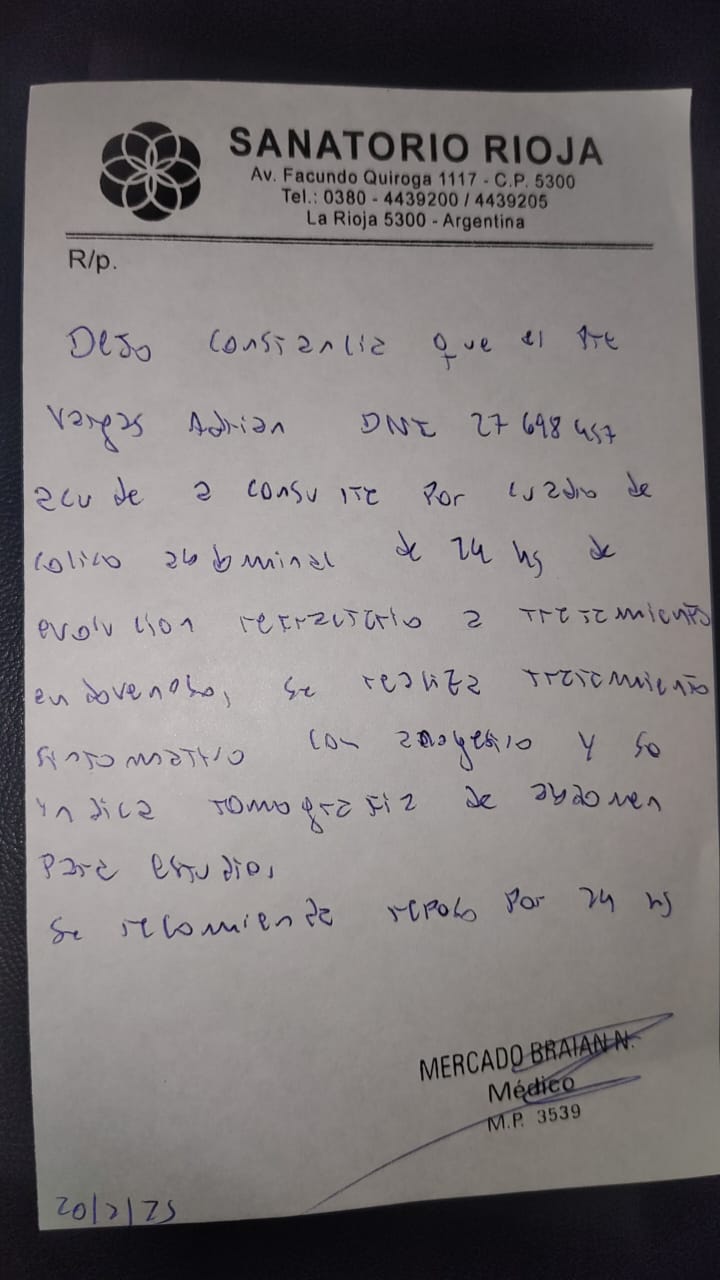 SANATORIO RIOJA
Av. Facundo Quiroga 1117 - C.P. 5300
Tel.: 0380 - 4439200 / 4439205
La Rioja 5300 - Argentina
R/p.
Dejo constancia que el Pte
Vargas Adrian DNI 27 698 457
acude a consulta por cuadro de
colico abdominal de 24 hs de
evolucion refractario a tratamiento
endovenoso, se realiza tratamiento
sintomatico con analgesico y se
indica tomografia de abdomen
para estudio,
se recomienda reposo por 24 hs
MERCADO BRAIAN N.
Médico
M.P. 3539
20/2/25